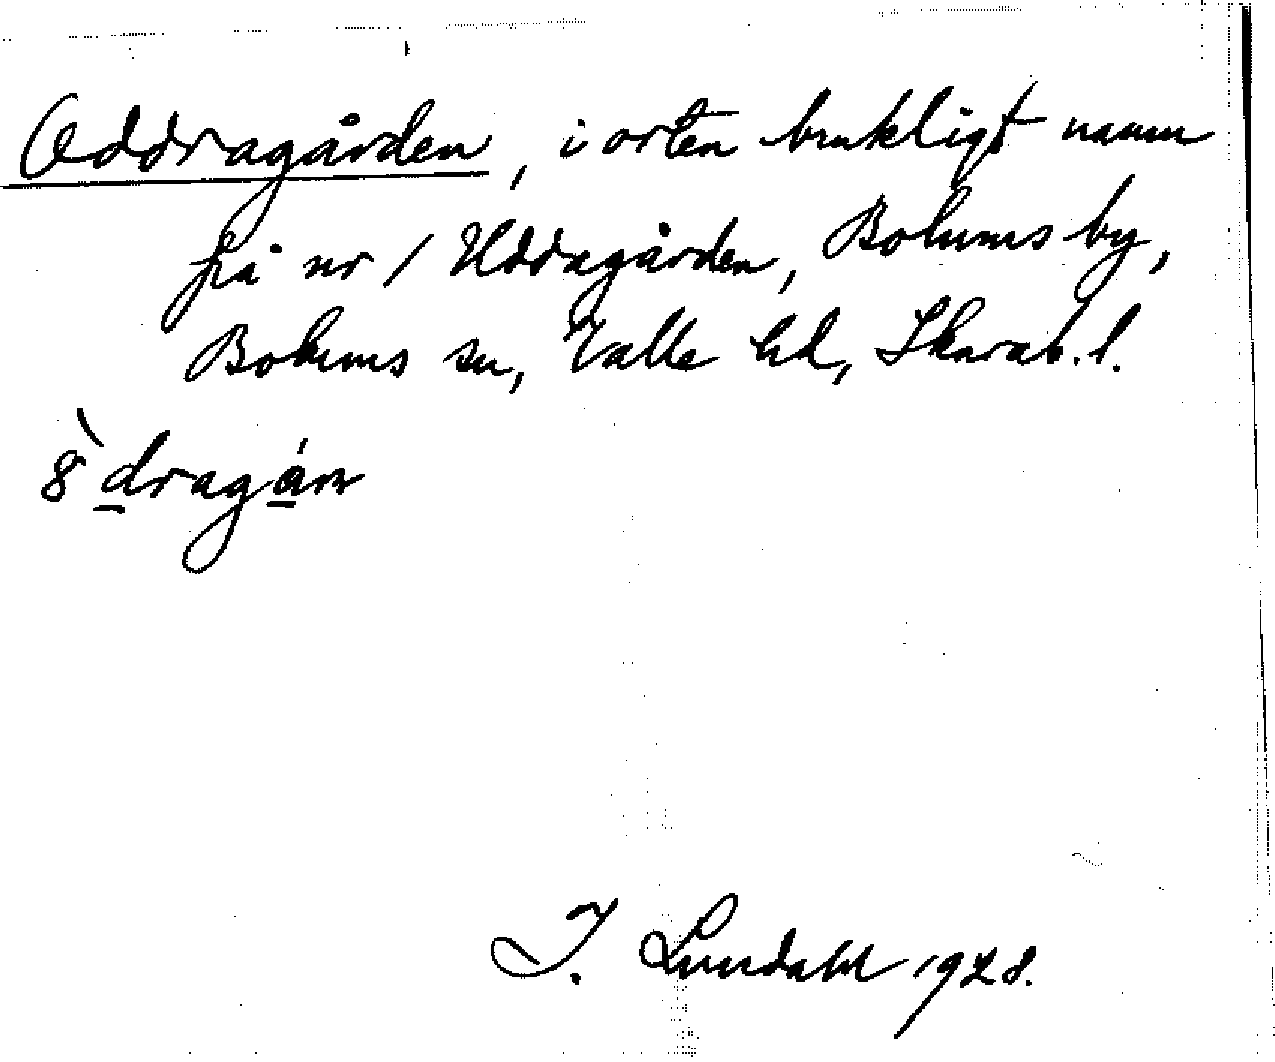 Oddragården, i orten brukligt namn
på nr 1 Uddagården, Bolums by,
Bolums sn, Valle hd, Skarab. l.
I. Lundahl 1928.